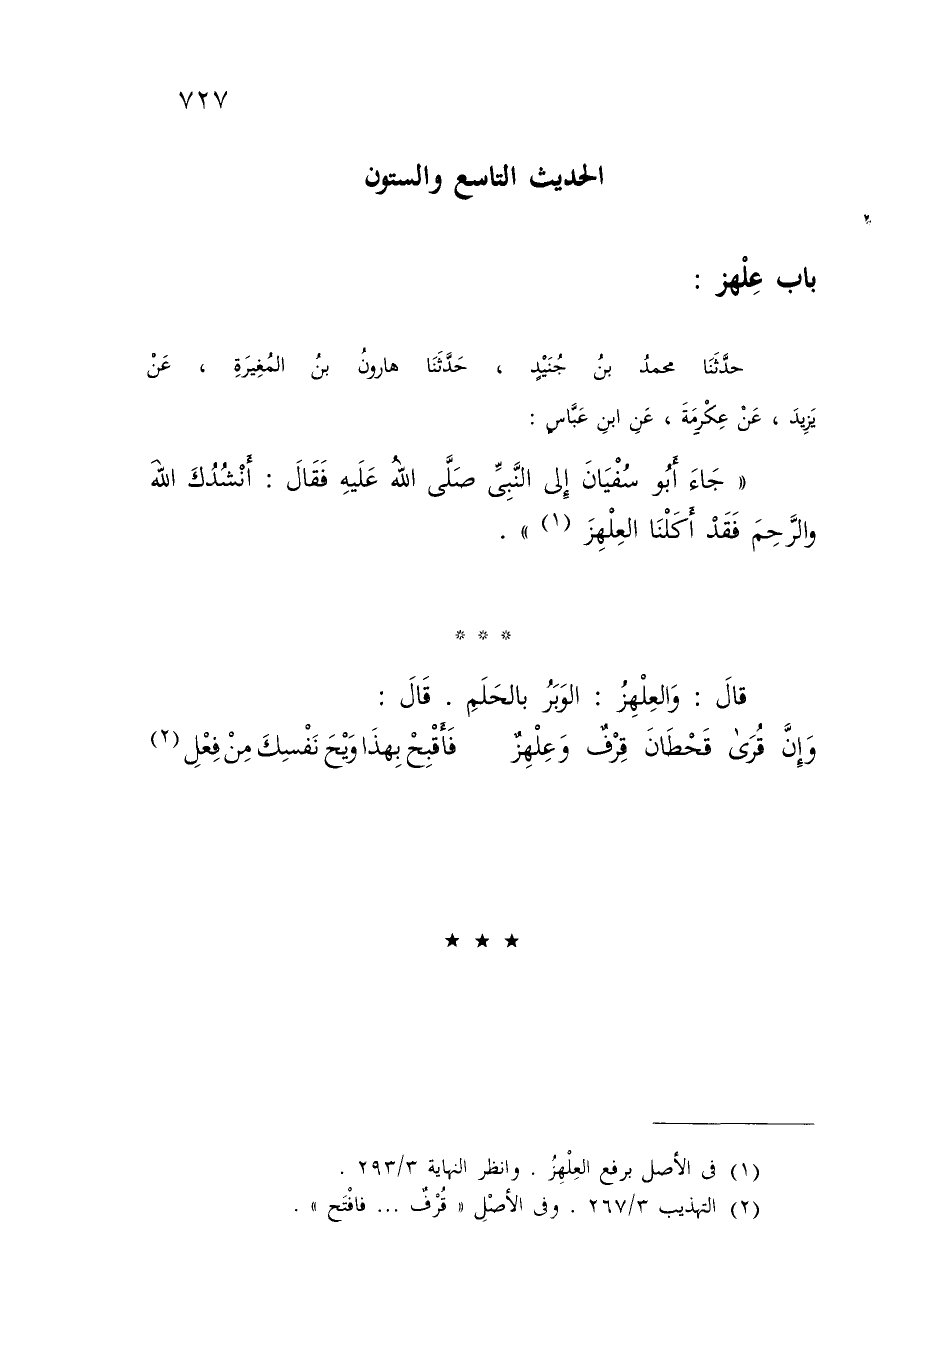 ٧٢٧
الحديث التاسع والستون
باب عِلْهز :
حدَّثَنَا محمدُ بنُ جُنَيْدٍ ، حَدَّثَنَا هارونُ بنُ المُغِيرَةِ ، عَنْ
يَزِيدَ ، عَنْ عِكْرِمَةَ ، عَنِ ابنِ عَبَّاسٍ :
« جَاءَ أَبُو سُفْيَانَ إِلى النَّبِىِّ صَلَّى اللهُ عَلَيهِ فَقَالَ : أَنْشُدُكَ اللهَ
والرَّحِمَ فَقَدْ أَكَلْنَا العِلْهِزَ (١) » .
* * *
قالَ : وَالعِلْهِزُ : الوَبَرُ بالحَلَمِ . قَالَ :
وَإِنَّ قُرَىٰ قَحْطَانَ قِرْفٌ وَعِلْهِزٌ فَأَقْبِحْ بِهذَا وَيْحَ نَفْسِكَ مِنْ فِعْلِ (٢)
★ ★ ★
(١) فى الأصل برفع العِلْهِزُ . وانظر النهاية ٢٩٣/٣ .
(٢) التهذيب ٢٦٧/٣ . وفى الأصْلِ « قُرْفٌ ... فافْتَح » .